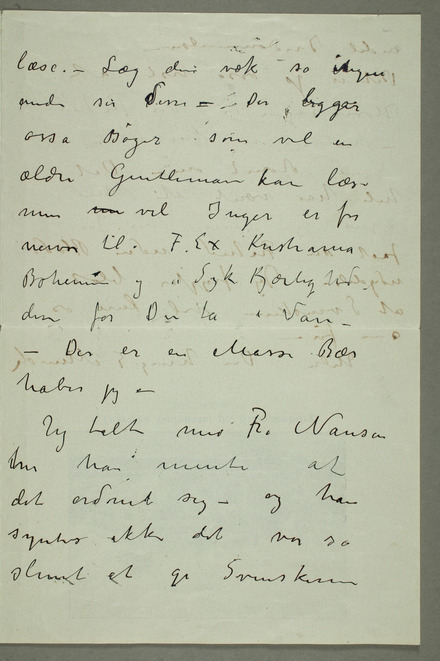 læse. – Læg dem væk så ingen
anden ser Disse – Der ligger
osså Bøger som vel en
ældre Gentleman kan læse
men vel Inger er for
nervøs til. F. Ex Kristiania
Bohemen og Syk Kjærlighed
dem før Du ta i Van –
– Der er en Masse Bær
haber jeg –
Jeg talte med Fr. Nansen
han mente at
det ordnet seg – og han
syntes ikke det var så
slemt at gi Svenskerne